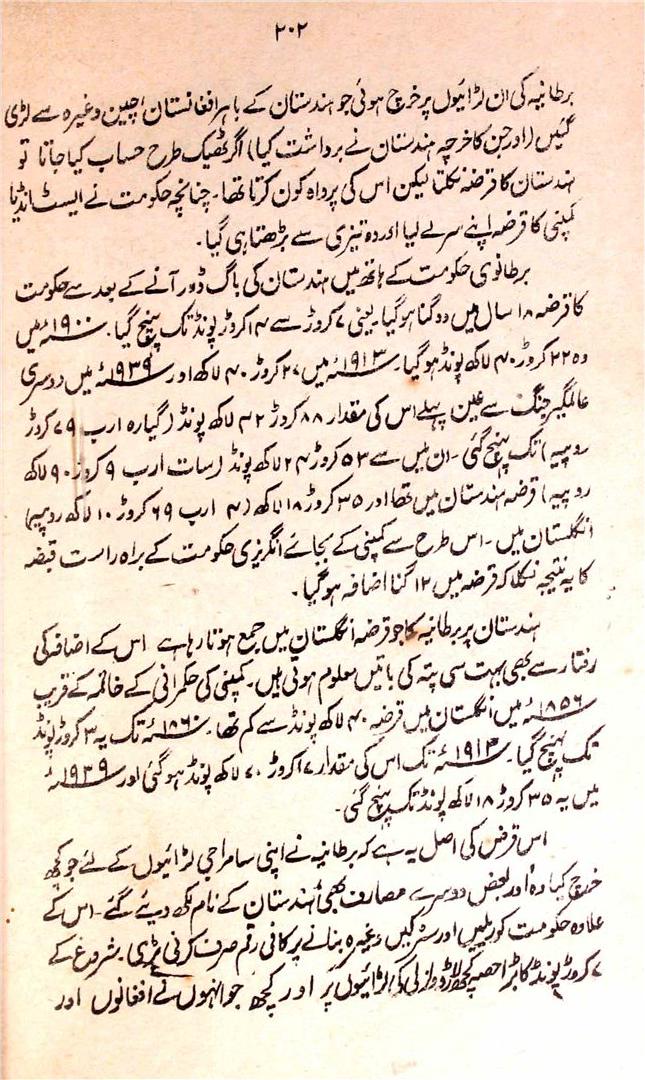 ۲۰۲
برطانیہ کی ان لڑائیوں پر خرچ ہوئی جو ہندستان کے باہر افغانستان، چین وغیرہ سے لڑی
گئیں (اور جن کا خرچہ ہندستان نے برداشت کیا) اگر ٹھیک طرح حساب کیا جاتا تو
ہندستان کا قرضہ نکلتا لیکن اس کی پرواہ کون کرتا تھا۔ چنانچہ حکومت نے ایسٹ انڈیا
کمپنی کا قرضہ اپنے سر لے لیا اور وہ تیزی سے بڑھتا ہی گیا۔
برطانوی حکومت کے ہاتھ میں ہندستان کی باگ ڈور آنے کے بعد سے حکومت
کا قرضہ ۱۸ سال میں دوگنا ہو گیا۔ یعنی ۷ کروڑ سے ۱۴ کروڑ پونڈ تک پہنچ گیا۔ ۱۹۰۰ء میں
وہ ۲۲ کروڑ ۴۰ لاکھ پونڈ ہو گیا۔ ۱۹۱۳ء میں ۲۷ کروڑ ۴۰ لاکھ اور ۱۹۳۹ء میں دوسری
عالمگیر جنگ سے عین پہلے اس کی مقدار ۸۸ کروڑ ۴۲ لاکھ پونڈ (گیارہ ارب ۷۹ کروڑ
روپیہ) تک پہنچ گئی۔ ان میں سے ۵۳ کروڑ ۲۴ لاکھ پونڈ (سات ارب ۹ کروڑ ۹۰ لاکھ
روپیہ) قرضہ ہندستان میں تھا اور ۳۵ کروڑ ۱۸ لاکھ (۴ ارب ۶۹ کروڑ ۱۰ لاکھ روپیہ)
انگلستان میں۔ اس طرح سے کمپنی کے بجائے انگریزی حکومت کے براہ راست قبضہ
کا یہ نتیجہ نکلا کہ قرضہ میں ۱۲ گنا اضافہ ہو گیا۔
ہندستان پر برطانیہ کا جو قرضہ انگلستان میں جمع ہوتا رہا ہے اس کے اضافہ کی
رفتار سے بھی بہت سی پتہ کی باتیں معلوم ہوتی ہیں۔ کمپنی کی حکمرانی کے خاتمہ کے قریب
۱۸۵۶ء میں انگلستان میں قرضہ ۴۰ لاکھ پونڈ سے کم تھا۔ ۱۸۶۰ء تک یہ ۳ کروڑ پونڈ
تک پہنچ گیا۔ ۱۹۱۳ء تک اس کی مقدار ۱۷ کروڑ ۷۰ لاکھ پونڈ ہو گئی اور ۱۹۳۹ء
میں یہ ۳۵ کروڑ ۱۸ لاکھ پونڈ تک پہنچ گئی۔
اس قرض کی اصل یہ ہے کہ برطانیہ نے اپنی سامراجی لڑائیوں کے لئے جو کچھ
خرچ کیا وہ اور بعض دوسرے مصارف بھی ہندستان کے نام لکھ دیئے گئے۔ اس کے
علاوہ حکومت کو ریلیں اور سڑکیں وغیرہ بنانے پر کافی رقم صرف کرنی پڑی۔ شروع کے
۷ کروڑ پونڈ کا بڑا حصہ کچھ لارڈ ولزلی کی لڑائیوں پر اور کچھ جو انہوں نے افغانوں اور